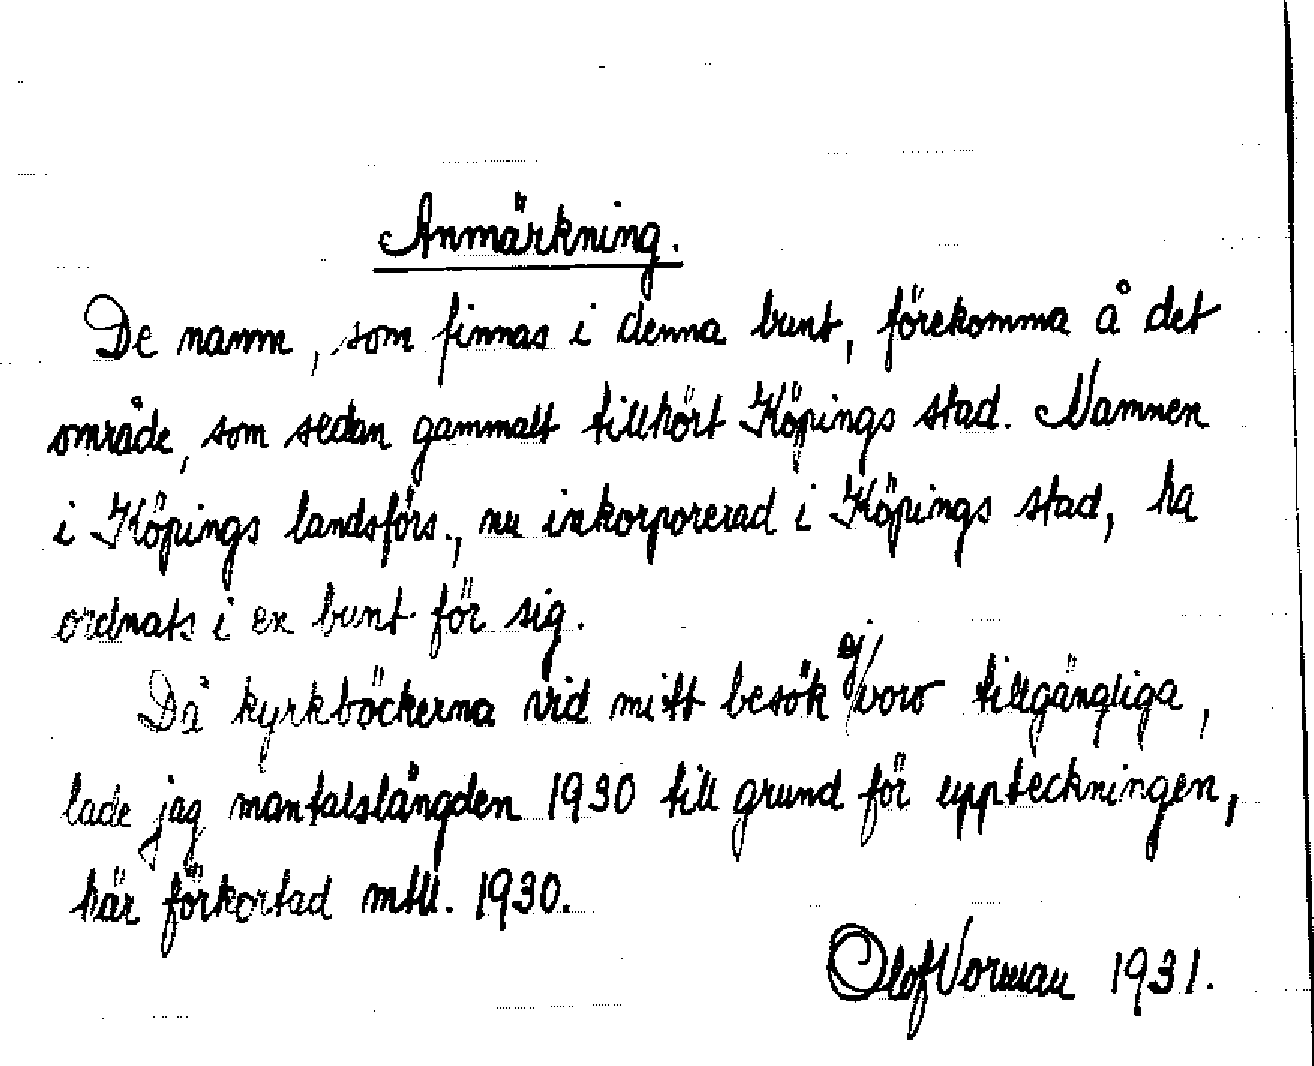 Anmärkning.
De namn, som finnas i denna bunt, förekomma å det
område, som sedan gammalt tillhört Köpings stad. Namnen
i Köpings landsförs., nu inkorporerad i Köpings stad, ha
ordnats i en bunt för sig.
Då kyrkböckerna vid mitt besök ej voro tillgängliga,
lade jag mantalslängden 1930 till grund för uppteckningen,
här förkortad mtll. 1930.
Olof Vorman 1931.